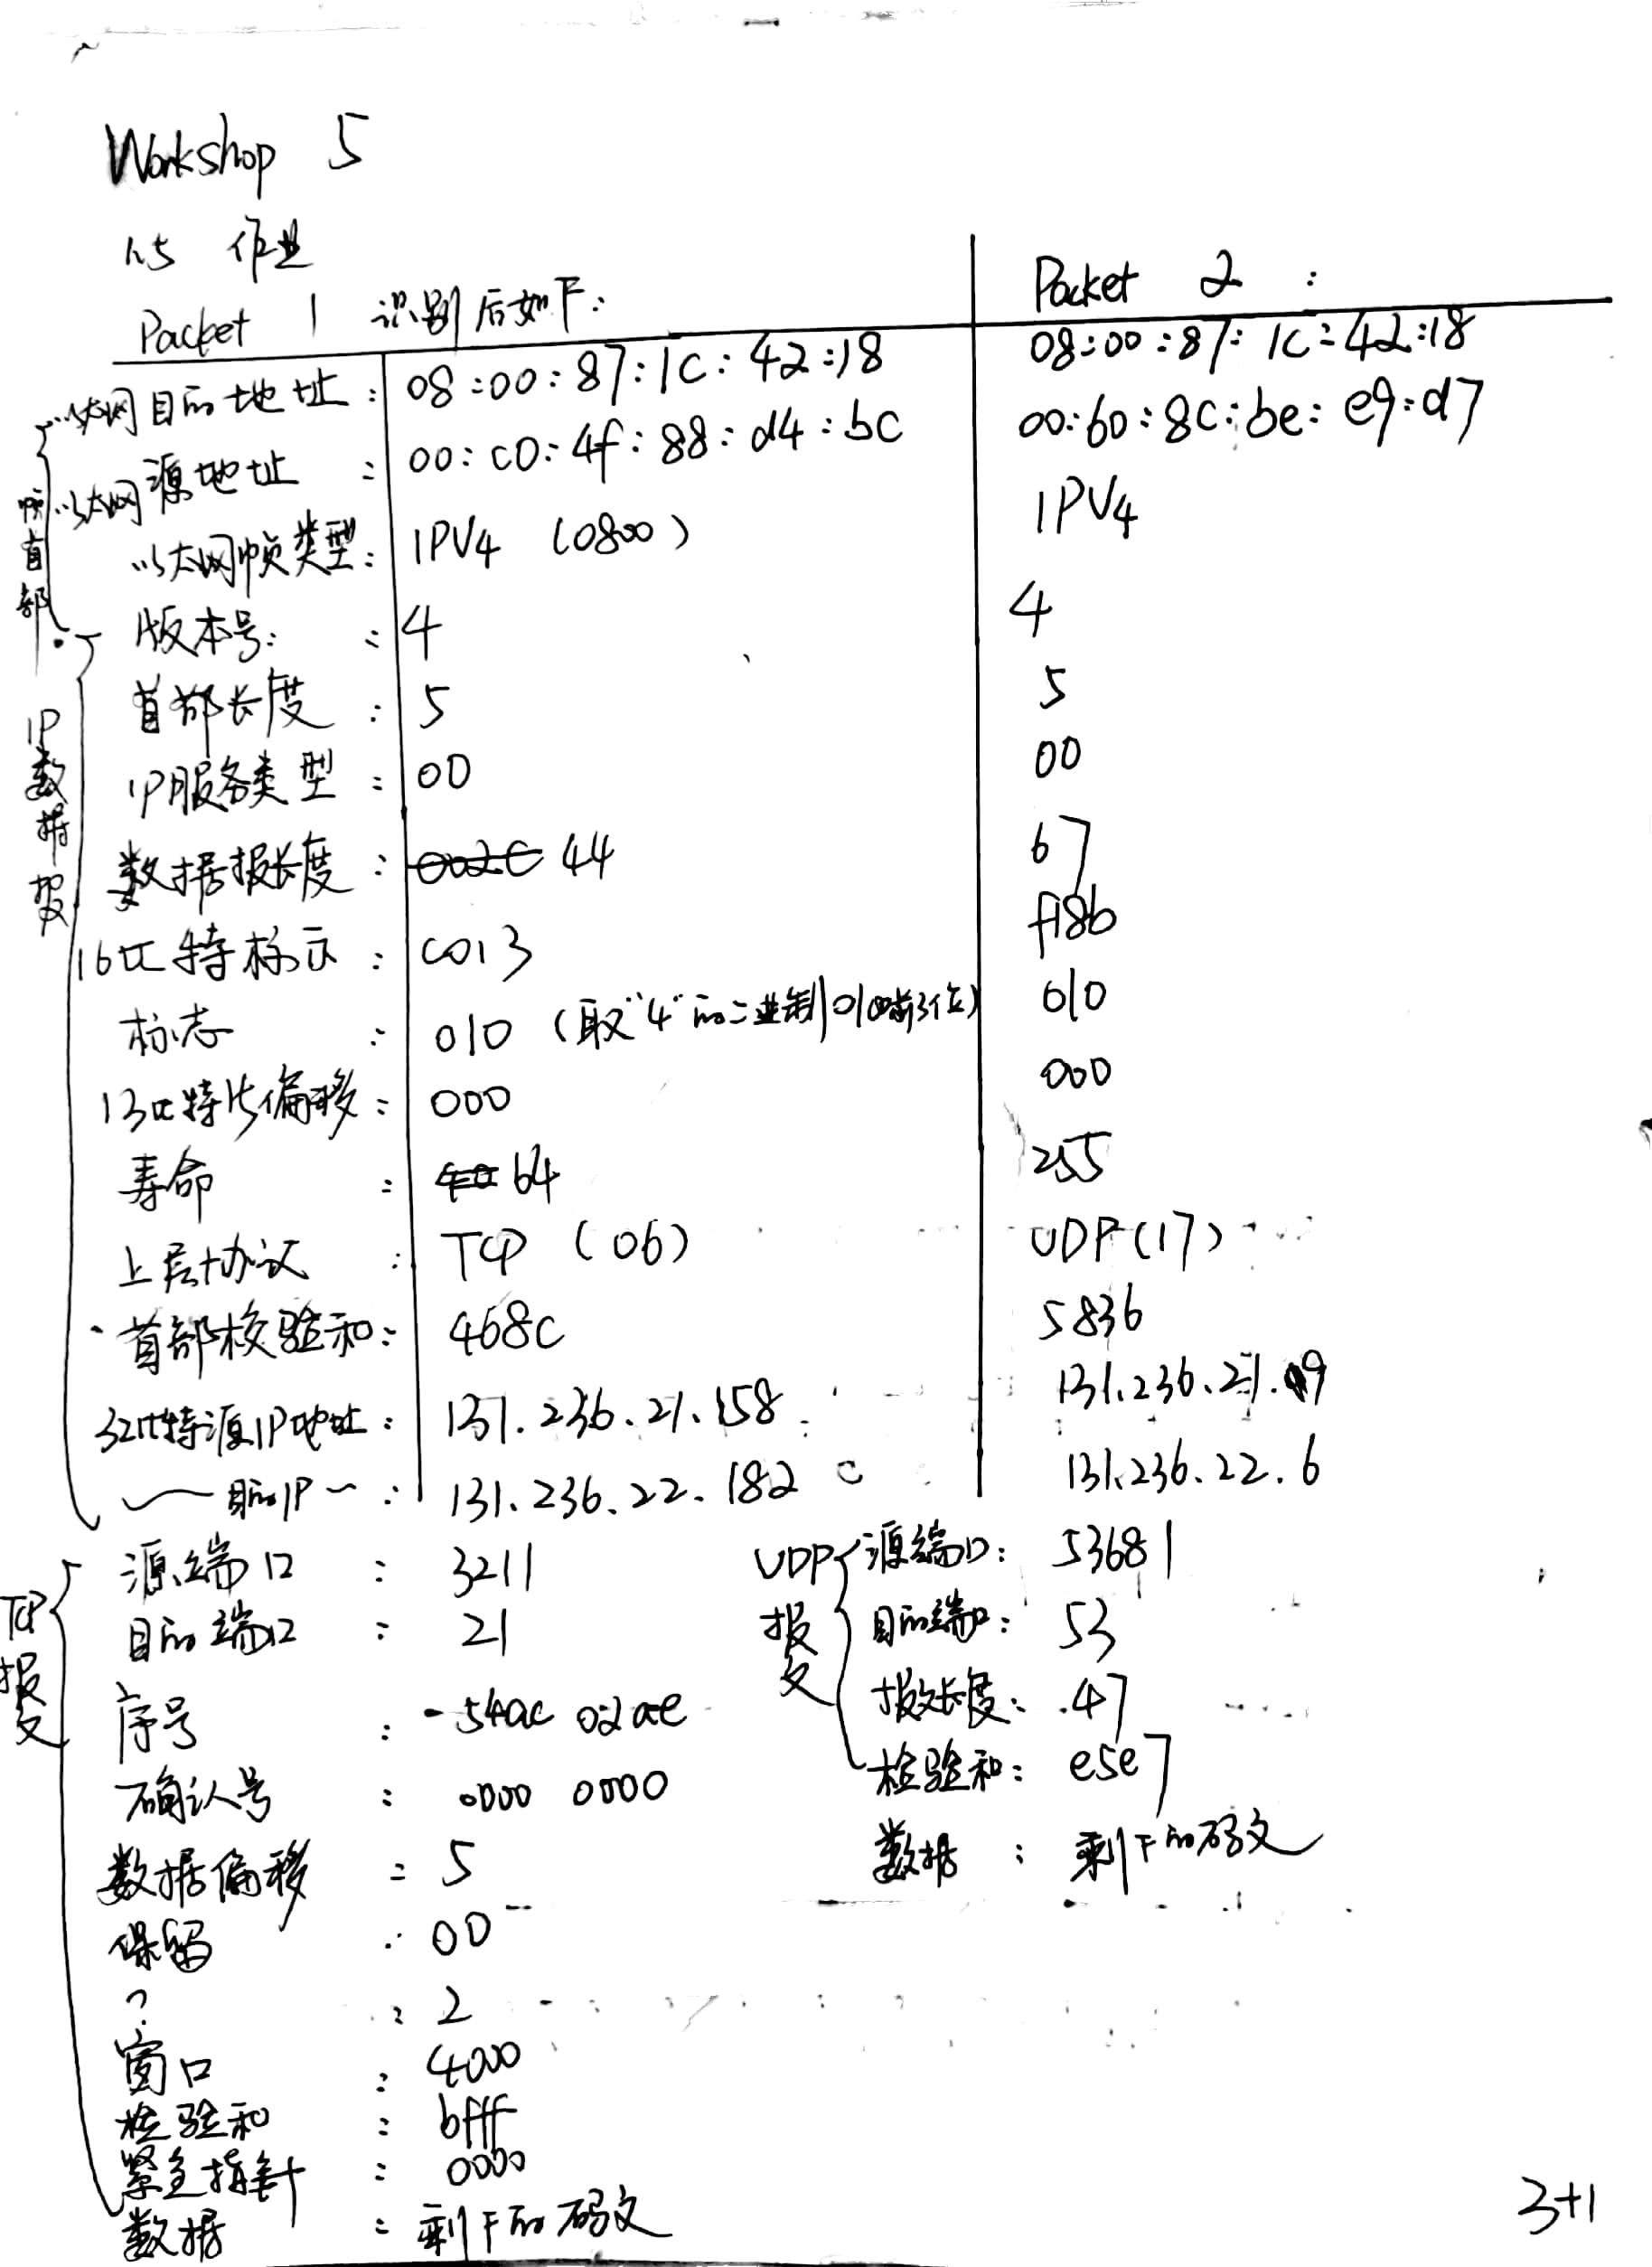 Workshop 5
1.5 作业
Packet 1 识别后如下:
Packet 2 :
帧首部
以太网目的地址: 08:00:87:1C:42:18 08:00:87:1C:42:18
以太网源地址 : 00:C0:4f:88:d4:bC 00:60:8C:be:e9:d7
以太网帧类型: IPV4 (0800) IPV4
IP数据报
版本号: : 4 4
首部长度 : 5 5
IP服务类型 : 00 00
数据报长度 : 002C 44 67
16比特标示 : C013 f18b
标志 : 010 (取"4"的二进制0100前3位) 010
13比特片偏移 : 000 000
寿命 : 40 64 255
上层协议 : TCP (06) UDP(17)
首部校验和: 468C 5836
32比特源IP地址: 131.236.21.158 131.236.21.9
目的IP : 131.236.22.182 131.236.22.6
TCP报文
源端口 : 3211
目的端口 : 21
序号 : 54ac 02ae
确认号 : 0000 0000
数据偏移 : 5
保留 : 00
? : 2
窗口 : 4000
检验和 : bfff
紧急指针 : 0000
数据 : 剩下的码文
UDP报文
源端口: 53681
目的端口: 53
报文长度: 47
检验和: e5e7
数据 : 剩下的码文
3+1